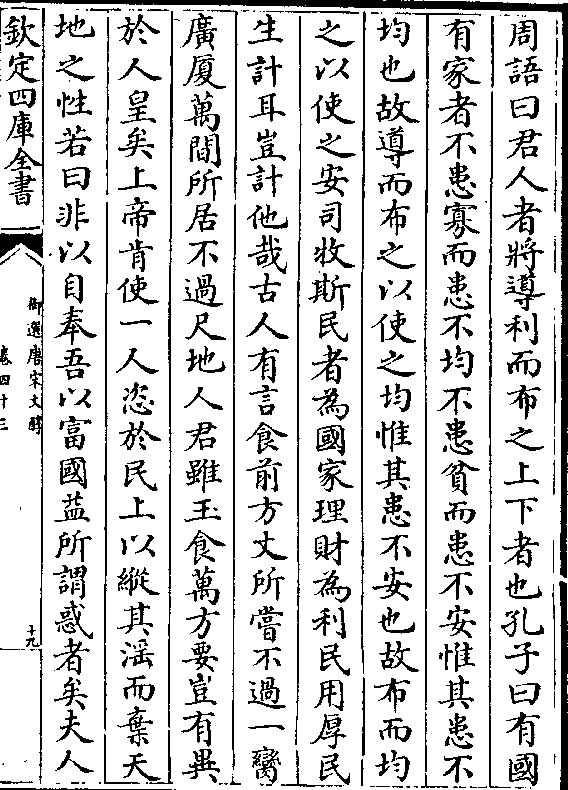 周語曰君人者將導利而布之上下者也孔子曰有國
有家者不患寡而患不均不患貧而患不安惟其患不
均也故導而布之以使之均惟其患不安也故布而均
之以使之安司牧斯民者為國家理財為利民用厚民
生計耳豈計他哉古人有言食前方丈所嘗不過一臠
廣厦萬間所居不過尺地人君雖玉食萬方要豈有異
於人皇矣上帝肯使一人恣於民上以縱其淫而棄天
地之性若曰非以自奉吾以富國葢所謂惑者矣夫人
欽定四庫全書
御選唐宋文醇
卷四十三
十九